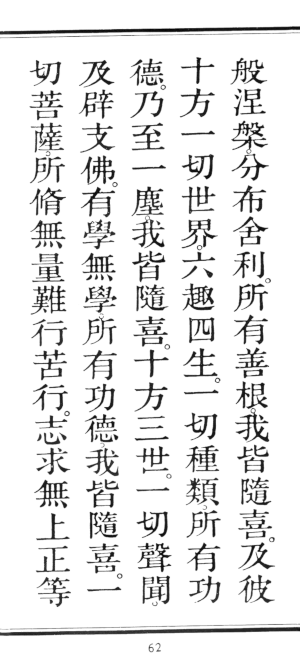 般涅槃。分布舍利。所有善根。我皆隨喜。及彼
十方一切世界。六趣四生。一切種類。所有功
德。乃至一塵。我皆隨喜。十方三世。一切聲聞。
及辟支佛。有學無學。所有功德。我皆隨喜。一
切菩薩。所脩無量難行苦行。志求無上正等
62